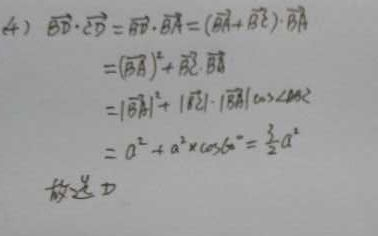 (4) $\overrightarrow{BD}\cdot\overrightarrow{CD}=\overrightarrow{BD}\cdot\overrightarrow{BA}=(\overrightarrow{BA}+\overrightarrow{BC})\cdot\overrightarrow{BA}$
$=(\overrightarrow{BA})^2+\overrightarrow{BC}\cdot\overrightarrow{BA}$
$=|\overrightarrow{BA}|^2+|\overrightarrow{BC}|\cdot|\overrightarrow{BA}|\cos\angle ABC$
$=a^2+a^2\times\cos60°=\frac{3}{2}a^2$
故选 D